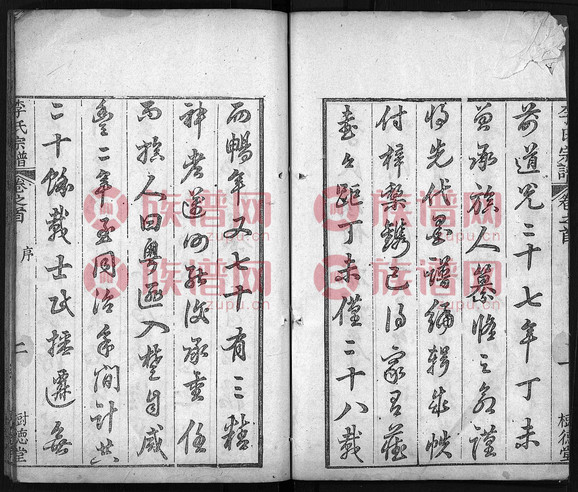 前道光二十七年丁未
曾承族人纂修之命謹
將先代墨譜編輯成帙
付梓契鐫已日家君在
堂之距丁未僅二十八載
李氏宗譜
卷之首
一
樹德堂
而暢年又七十有三精
神老邁 能復承重任
而族人曰粵匪入楚自咸
豐二年至同治年間計其
二十餘載士民播遷無
李氏宗譜
卷之首
序
二
樹德堂
族谱网
zupu.cn